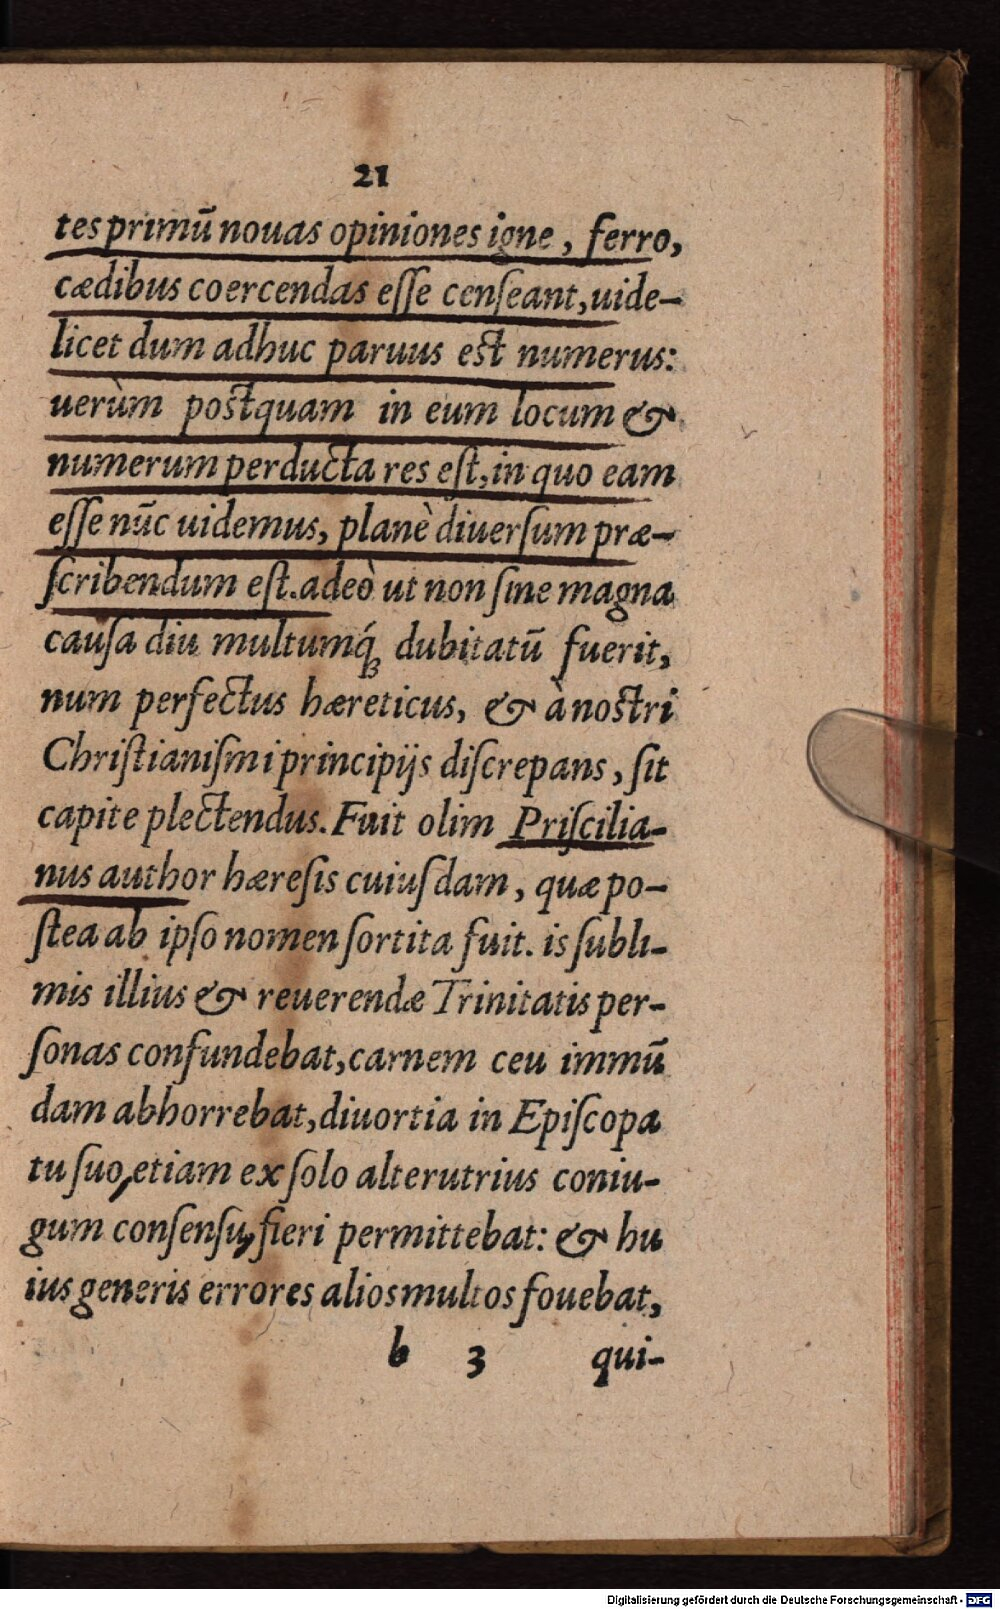 21
tes primū nouas opiniones igne, ferro,
cædibus coercendas eſſe cenſeant, uide-
licet dum adhuc paruus est numerus:
uerùm postquam in eum locum &
numerum perducta res eſt, in quo eam
eſſe nūc uidemus, planè diuerſum præ-
ſcribendum eſt. adeò ut non ſine magna
cauſa diu multumq́ꝫ dubitatū fuerit,
num perfectus hæreticus, & à nostri
Chriſtianiſmi principijs diſcrepans, ſit
capite plectendus. Fuit olim Priſcilia-
nus author hæreſis cuiuſdam, quæ po-
ſtea ab ipſo nomen ſortita fuit. is ſubli-
mis illius & reuerendæ Trinitatis per-
ſonas confundebat, carnem ceu immū
dam abhorrebat, diuortia in Epiſcopa
tu ſuo, etiam ex ſolo alterutrius coniu-
gum conſenſu, fieri permittebat: & hu
ius generis errores alios multos fouebat,
b 3 qui-
Digitalisierung gefördert durch die Deutsche Forschungsgemeinschaft - DFG